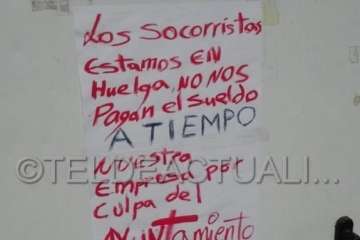 Los Socorristas
Estamos EN
Huelga, NO NOS
Pagan el Sueldo
A TIEMPO
©TELDEACTUALI...
Nuestra
Empresa por
Culpa del
Ayuntamiento